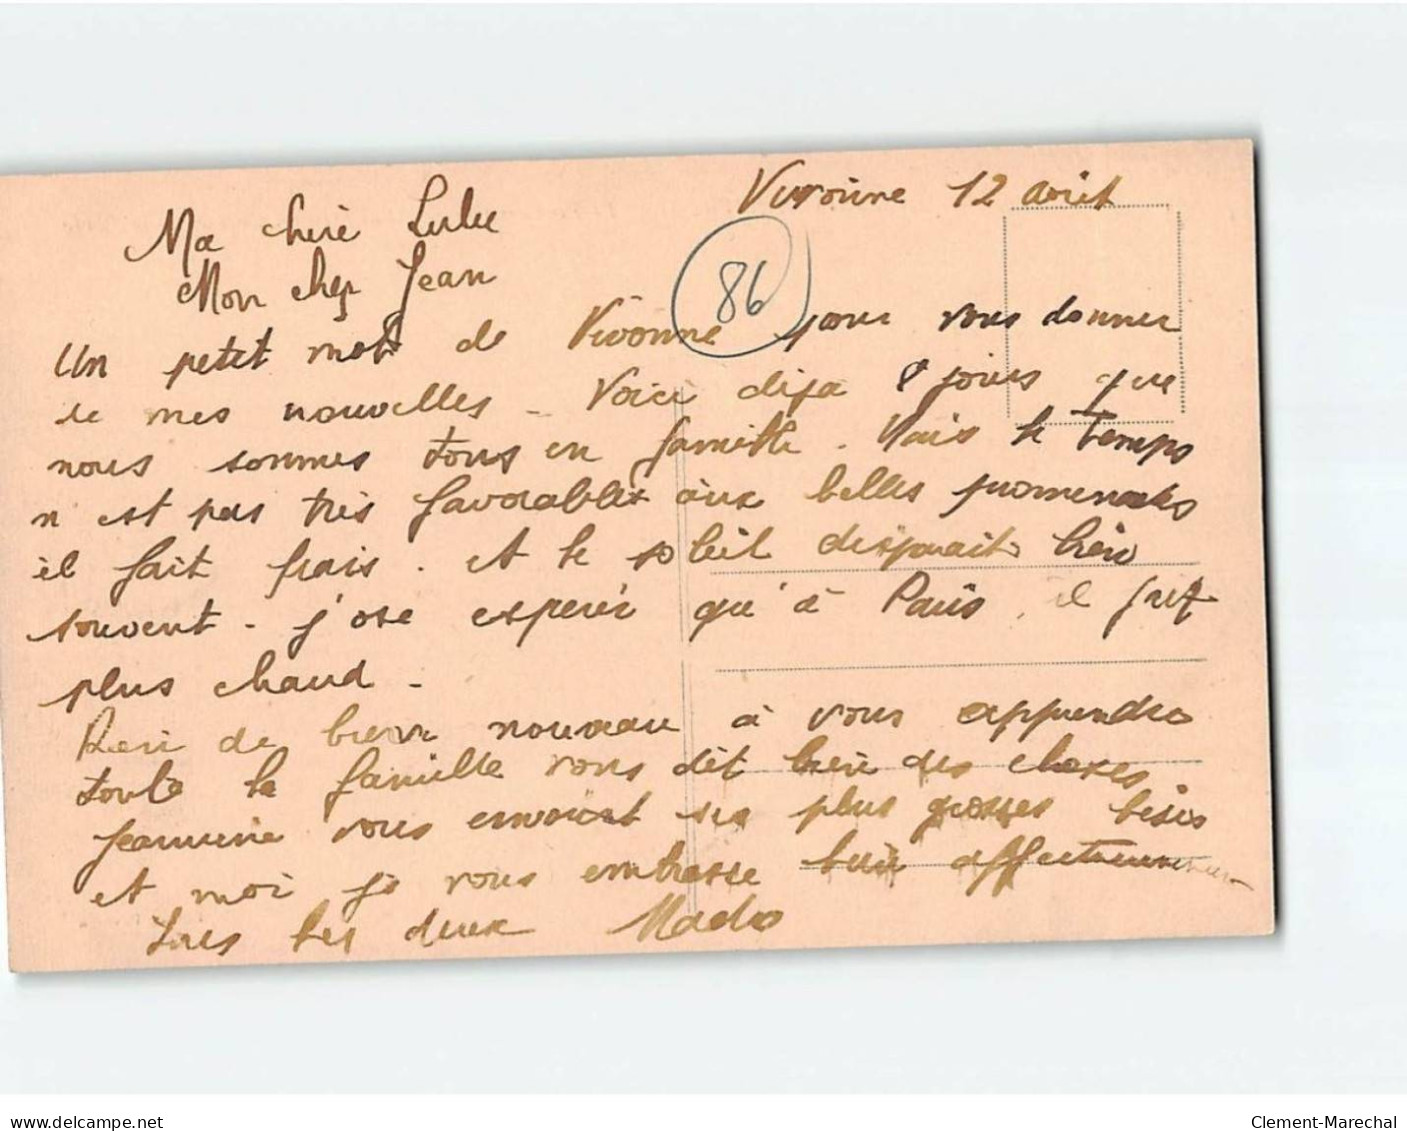 Vivonne 12 août
Ma chère Lulu
Mon cher Jean
86
Un petit mot de Vivonne pour vous donner
de mes nouvelles - Voici déja 8 jours que
nous sommes tous en famille. Mais le temps
n'est pas très favorable aux belles promenades
il fait frais. et le soleil disparait bien
souvent - j'ose esperer qu'à Paris, il fait
plus chaud -
Rien de bien nouveau à vous apprendre
toute la famille vous dit bien des choses.
Jeannine vous envoient ses plus grosses bises
et moi je vous embrasse bien affectueusement
tous les deux Mado
www.delcampe.net
Clement-Marechal